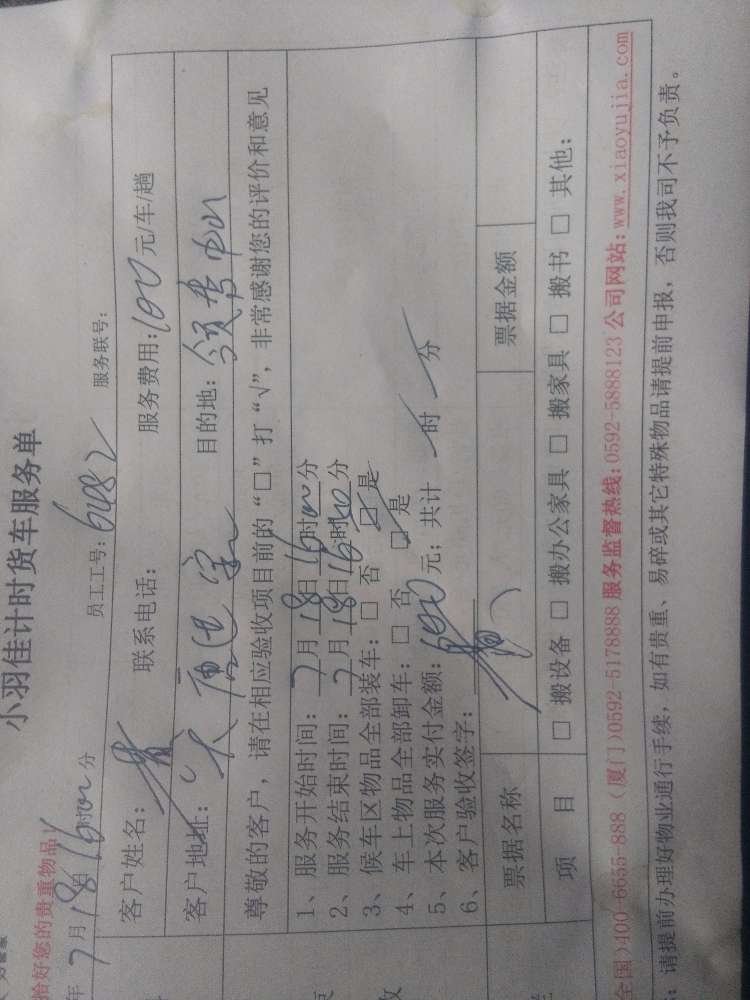 小羽佳计时货车服务单
恰好您的贵重物品）
年 7月18日16时00分 员工工号：61082 服务联号：
客户姓名： 联系电话： 服务费用：100元/车/趟
客户地址： 目的地：
尊敬的客户，请在相应验收项目前的“□”打“√”，非常感谢您的评价和意见
1、服务开始时间：7月18日16时00分
2、服务结束时间：7月18日16时 分
3、候车区物品全部装车：□ 否 ☑ 是
4、车上物品全部卸车：□ 否 ☑ 是
5、本次服务实付金额： 元；共计 时 分
6、客户验收签字：
票据名称 票据金额
项 目 □ 搬设备 □ 搬办公家具 □ 搬家具 □ 搬书 □ 其他：
全国)400-6655-888（厦门)0592-5178888 服务监督热线:0592-5888123 公司网站:www.xiaoyujia.com
：请提前办理好物业通行手续，如有贵重、易碎或其它特殊物品请提前申报，否则我司不予负责。